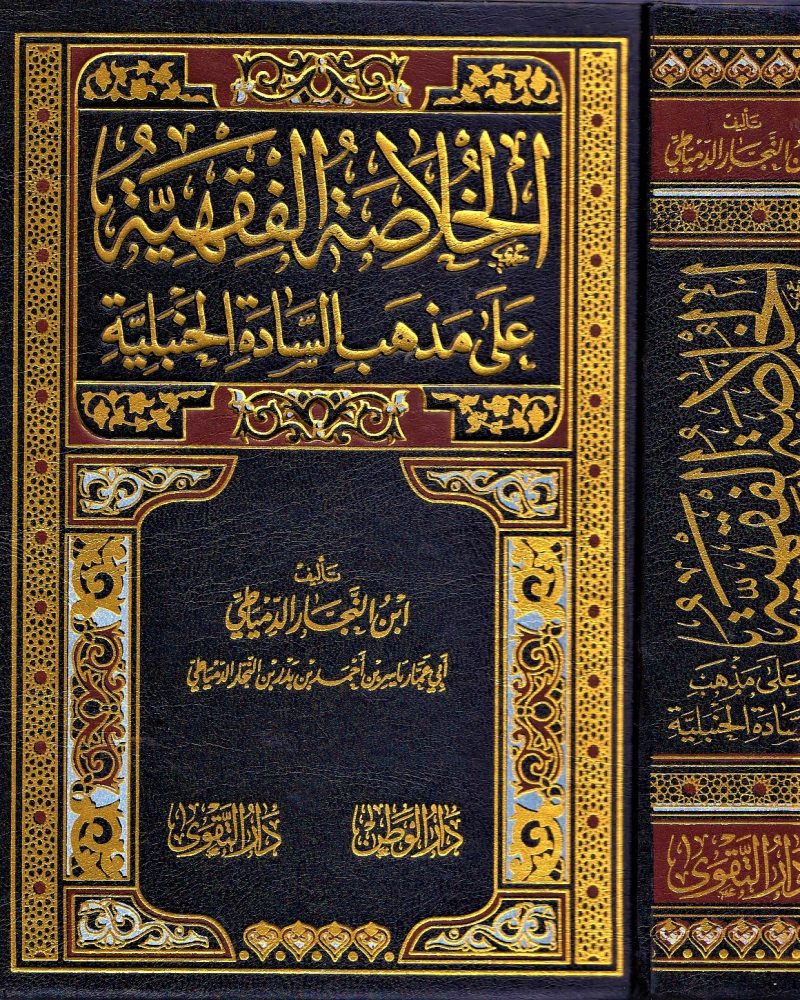 الخُلَاصَةُ الفِقْهِيَّةُ
عَلَى مَذْهَبِ السَّادَةِ الحَنْبَلِيَّةِ
تَأليف
ابْنُ النَّجَّارِ الدِّمْيَاطِيِّ
أَبِي عَمَّار يَاسِر بْنِ أَحْمَد بْنِ بَدْر بْنِ النَّجَّار الدِّمْيَاطِيِّ
دَارُ الوَطَنِ
دَارُ التَّقْوَى
تَأليف
النَّجَّارِ الدِّمْيَاطِيِّ
الخُلَاصَةُ الفِقْهِيَّةُ
عَلَى مَذْهَبِ
سَادَةِ الحَنْبَلِيَّةِ
دَارُ التَّقْوَى